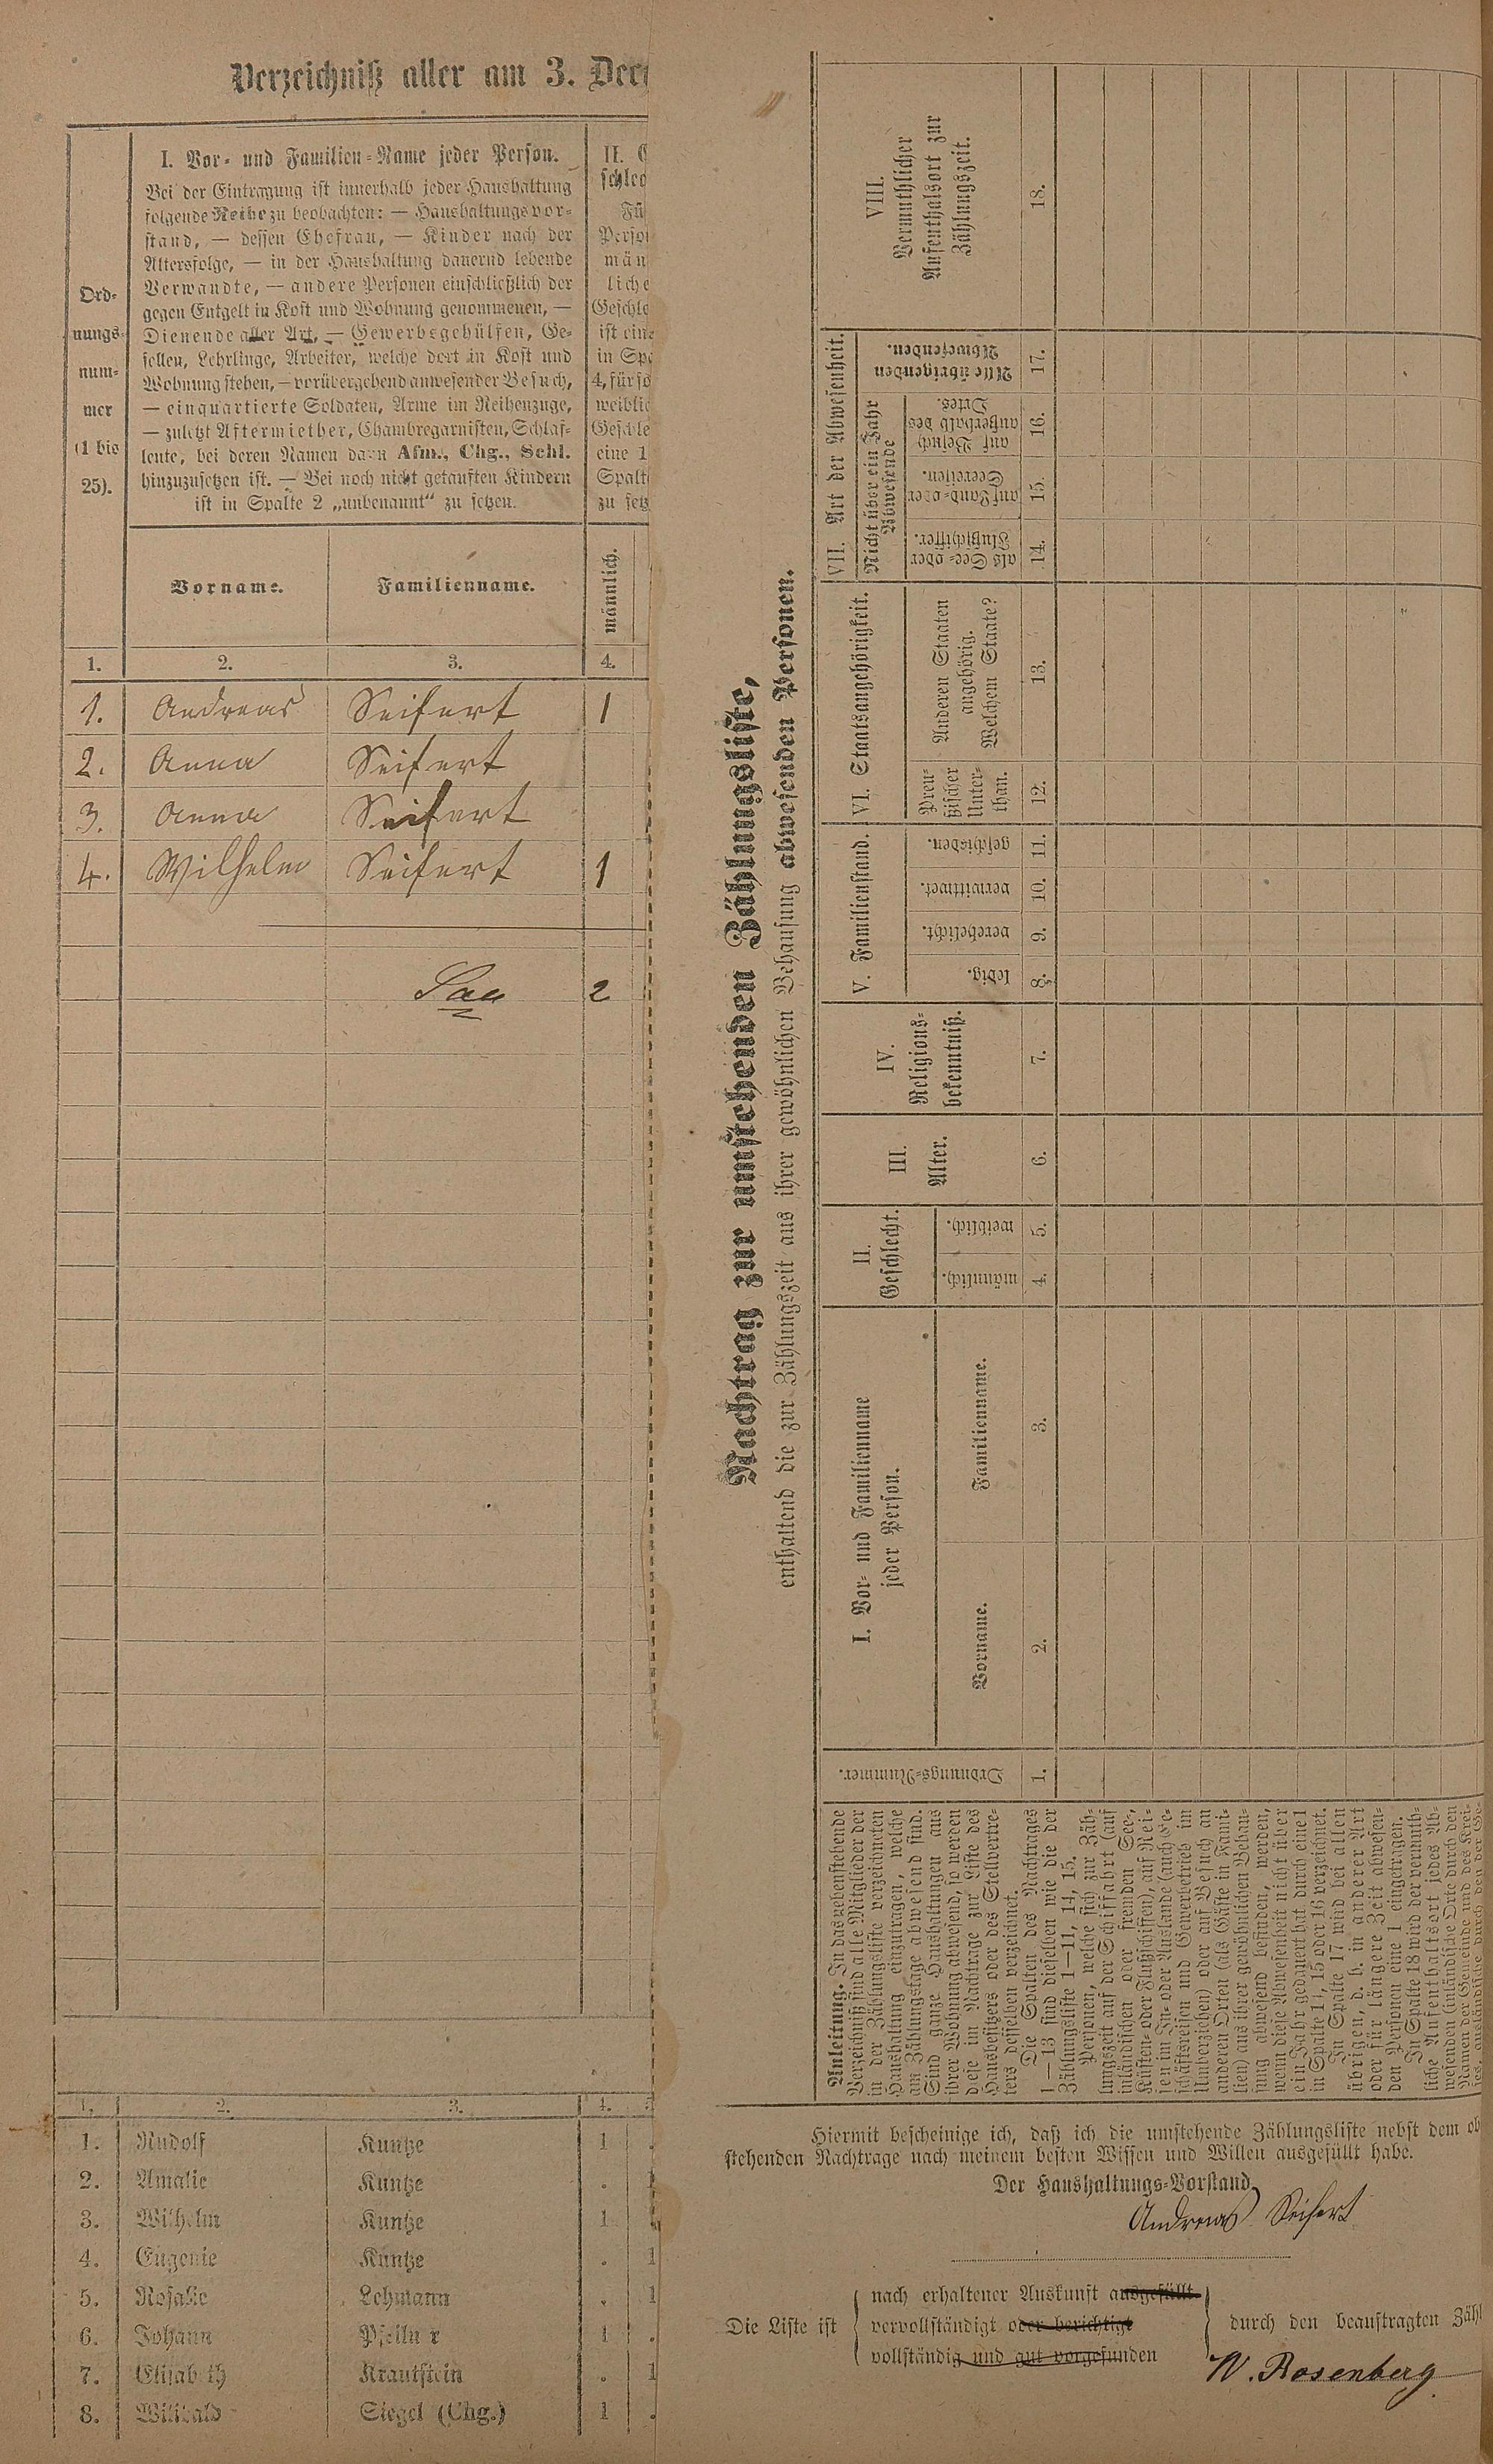 Verzeichniß aller am 3. Dec
Ord-
nungs-
num-
mer
(1 bis
25).
I. Vor- und Familien-Name jeder Person.
Bei der Eintragung ist innerhalb jeder Haushaltung
folgende Reihe zu beobachten: — Haushaltungsvor-
stand, — dessen Ehefrau, — Kinder nach der
Altersfolge, — in der Haushaltung dauernd lebende
Verwandte, — andere Personen einschließlich der
gegen Entgelt in Kost und Wohnung genommenen, —
Dienende aller Art, — Gewerbsgehülfen, Ge-
sellen, Lehrlinge, Arbeiter, welche dort in Kost und
Wohnung stehen, — vorübergehend anwesender Besuch,
— einquartierte Soldaten, Arme im Reihenzuge,
— zuletzt Aftermiether, Chambregarnisten, Schlaf-
leute, bei deren Namen dann Afm., Chg., Schl.
hinzuzusetzen ist. — Bei noch nicht getauften Kindern
ist in Spalte 2 „unbenannt“ zu setzen.
II. G
schlec
Fü
Perso
män
liche
Geschle
ist eine
in Spa
4, für so
weiblic
Geschle
eine 1
Spalt
zu setz
Vorname. Familienname. männlich.
1. 2. 3. 4.
1. Andreas Seifert 1
2. Anna Seifert
3. Anna Seifert
4. Wilhelm Seifert 1
2
1. 2. 3. 4.
1. Rudolf Kuntze 1 .
2. Amalie Kuntze . 1
3. Wilhelm Kuntze 1 .
4. Eugenie Kuntze . 1
5. Rosalie Lehmann . 1
6. Johann 1 .
7. Elisabeth Krautstein . 1
8. Willibald Siegel (Chg.) 1 .
Nachtrag zur umstehenden Zählungsliste,
enthaltend die zur Zählungszeit aus ihrer gewöhnlichen Behausung abwesenden Personen.
Anleitung. In das nebenstehende
Verzeichniß sind alle Mitglieder der
in der Zählungsliste verzeichneten
Haushaltung einzutragen, welche
am Zählungstage abwesend sind.
Sind ganze Haushaltungen aus
ihrer Wohnung abwesend, so werden
diese im Nachtrage zur Liste des
Hausbesitzers oder des Stellvertre-
ters desselben verzeichnet.
Die Spalten des Nachtrages
1—13 sind dieselben wie die der
Zählungsliste 1—11, 14, 15.
Personen, welche sich zur Zäh-
lungszeit auf der Schiffahrt (auf
inländischen oder fremden See-,
Küsten- oder Flußschiffen), auf Rei-
sen im In- oder Auslande (auch Ge-
schäftsreisen und Gewerbetrieb im
Umherziehen) oder auf Besuch an
anderen Orten (als Gäste in Fami-
lien) aus ihrer gewöhnlichen Behau-
sung abwesend befinden, werden,
wenn diese Abwesenheit nicht über
ein Jahr gedauert hat durch eine 1
in Spalte 14, 15 oder 16 verzeichnet.
In Spalte 17 wird bei allen
übrigen, d. h. in anderer Art
oder für längere Zeit abwesen-
den Personen eine 1 eingetragen.
In Spalte 18 wird der vermuth-
liche Aufenthaltsort jedes Ab-
wesenden (inländische Orte durch den
Namen der Gemeinde und des Krei-
ses, ausländische durch den der Ge-
Ordnungs-Nummer.
I. Vor- und Familienname
jeder Person.
Vorname. Familienname.
II.
Geschlecht.
männlich. weiblich.
III.
Alter.
IV.
Religions-
bekenntniß.
V. Familienstand.
ledig. verehelicht. verwittwet. geschieden.
VI. Staatsangehörigkeit.
Preu-
ßischer
Unter-
than.
Anderen Staaten
angehörig.
Welchem Staate?
VII. Art der Abwesenheit.
Nicht über ein Jahr
Abwesende
als See- oder
Flußschiffer.
auf Land- oder
Seereisen.
auf Besuch
außerhalb des
Ortes.
Alle übrigen
Abwesenden.
VIII.
Vermuthlicher
Aufenthaltsort zur
Zählungszeit.
1. 2. 3. 4. 5. 6. 7. 8. 9. 10. 11. 12. 13. 14. 15. 16. 17. 18.
Hiermit bescheinige ich, daß ich die umstehende Zählungsliste nebst dem ob
stehenden Nachtrage nach meinem besten Wissen und Willen ausgefüllt habe.
Der Haushaltungs-Vorstand
Andreas Seifert
Die Liste ist
nach erhaltener Auskunft ausgefüllt
vervollständigt oder berichtigt
vollständig und gut vorgefunden
durch den beauftragten Zähl
W. Rosenberg